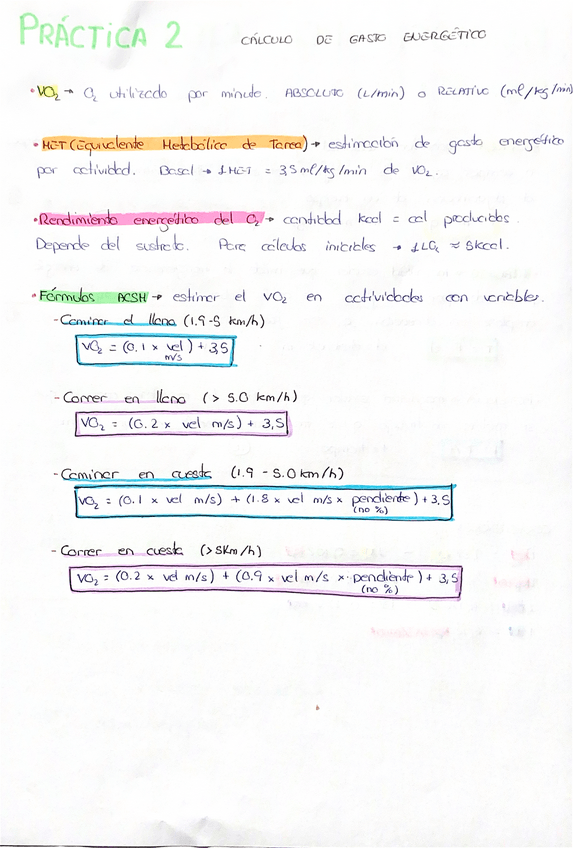 PRÁCTICA 2 CÁLCULO DE GASTO ENERGÉTICO
• VO₂ → O₂ utilizado por minuto. ABSOLUTO (L/min) o RELATIVO (ml/kg/min)
• MET (Equivalente Metabólico de Tarea) → estimación de gasto energético
por actividad. Basal → 1 MET = 3,5 ml/kg/min de VO₂.
• Rendimiento energético del O₂ → cantidad kcal = cal producidas.
Depende del sustrato. Para cálculos iniciales → 1 LO₂ ≈ 5kcal.
• Fórmulas ACSM → estimar el VO₂ en actividades con variables.
- Caminar el llano (1.9-5 km/h)
VO₂ = (0.1 x vel) + 3,5
m/s
- Correr en llano (> 5.0 km/h)
VO₂ = (0.2 x vel m/s) + 3,5
- Caminar en cuesta (1.9 - 5.0 km/h)
VO₂ = (0.1 x vel m/s) + (1.8 x vel m/s x pendiente) + 3,5
(no %)
- Correr en cuesta (>5Km/h)
VO₂ = (0.2 x vel m/s) + (0.9 x vel m/s x pendiente) + 3,5
(no %)